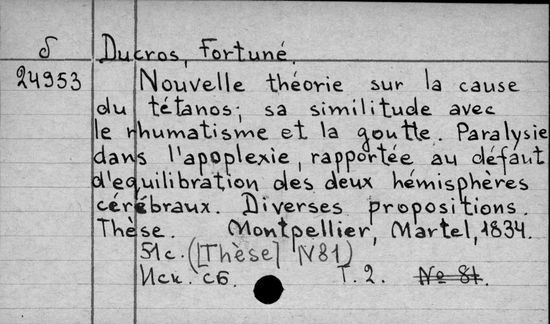 δ Ducros, Fortuné.
24953 Nouvelle théorie sur la cause
du tétanos; sa similitude avec
le rhumatisme et la goutte. Paralysie
dans l'apoplexie, rapportée au défaut
d'equilibration des deux hémisphères
cérébraux. Diverses propositions.
Thèse. Montpellier, Martel, 1834.
51c. ([Thèse] N81)
Иск. сб. Т. 2. № 81.